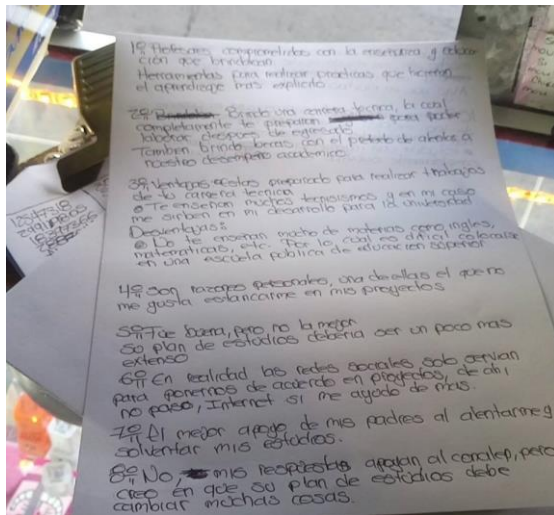 1º Profesores comprometidos con la enseñanza y educa-
ción que brindaban
Herramientas para realizar practicas que hicieron
el aprendizaje mas explicito.
2º Brinda una carrera tecnica, la cual
completamente te preparan para poder
laborar despues de egresado
Tambien brinda becas con el pretexto de alentar a
nuestro desempeño academico.
3º Ventajas: estas preparado para realizar trabajos
de tu carrera tecnica
Te enseñan muchos tecnisismos y en mi caso
me sirben en mi desarrollo para la universidad
Desventajas:
No te enseñan mucho de materias como ingles,
matematicas, etc. Por lo cual es dificil colocarse
en una escuela publica de educacion superior
4º Son razones personales, una de ellas el que no
me gusta estancarme en mis proyectos
5º Fue buena, pero no la mejor
su plan de estudios deberia ser un poco mas
extenso
6º En realidad las redes sociales solo servian
para ponernos de acuerdo en proyectos, de ahi
no paso, Internet si me ayudo de mas.
7º El mejor apoyo de mis padres al alentarme y
solventar mis estudios.
8º No, mis respuestas apoyan al conalep, pero
creo en que su plan de estudios debe
cambiar muchas cosas.